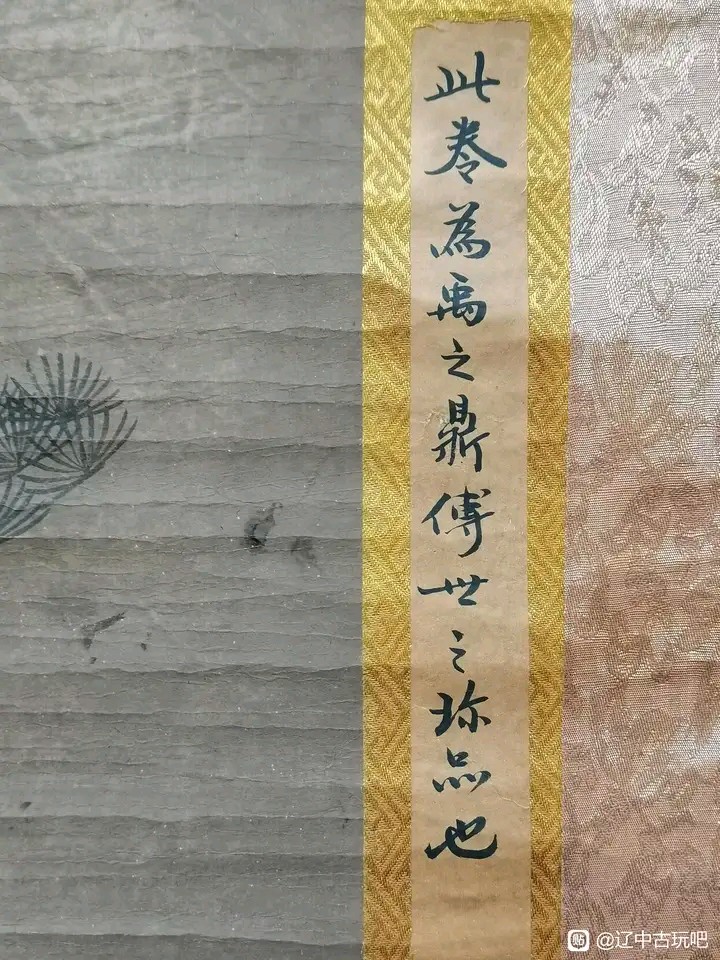 此卷為禹之鼎傳世之珎品也
貼 @辽中古玩吧